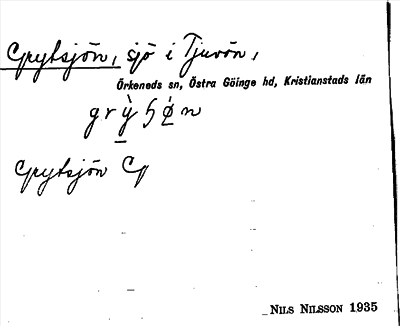 Grytsjön, sjö i Tjuvön,
Örkeneds sn, Östra Göinge hd, Kristianstads län
Grytsjön G
NILS NILSSON 1935